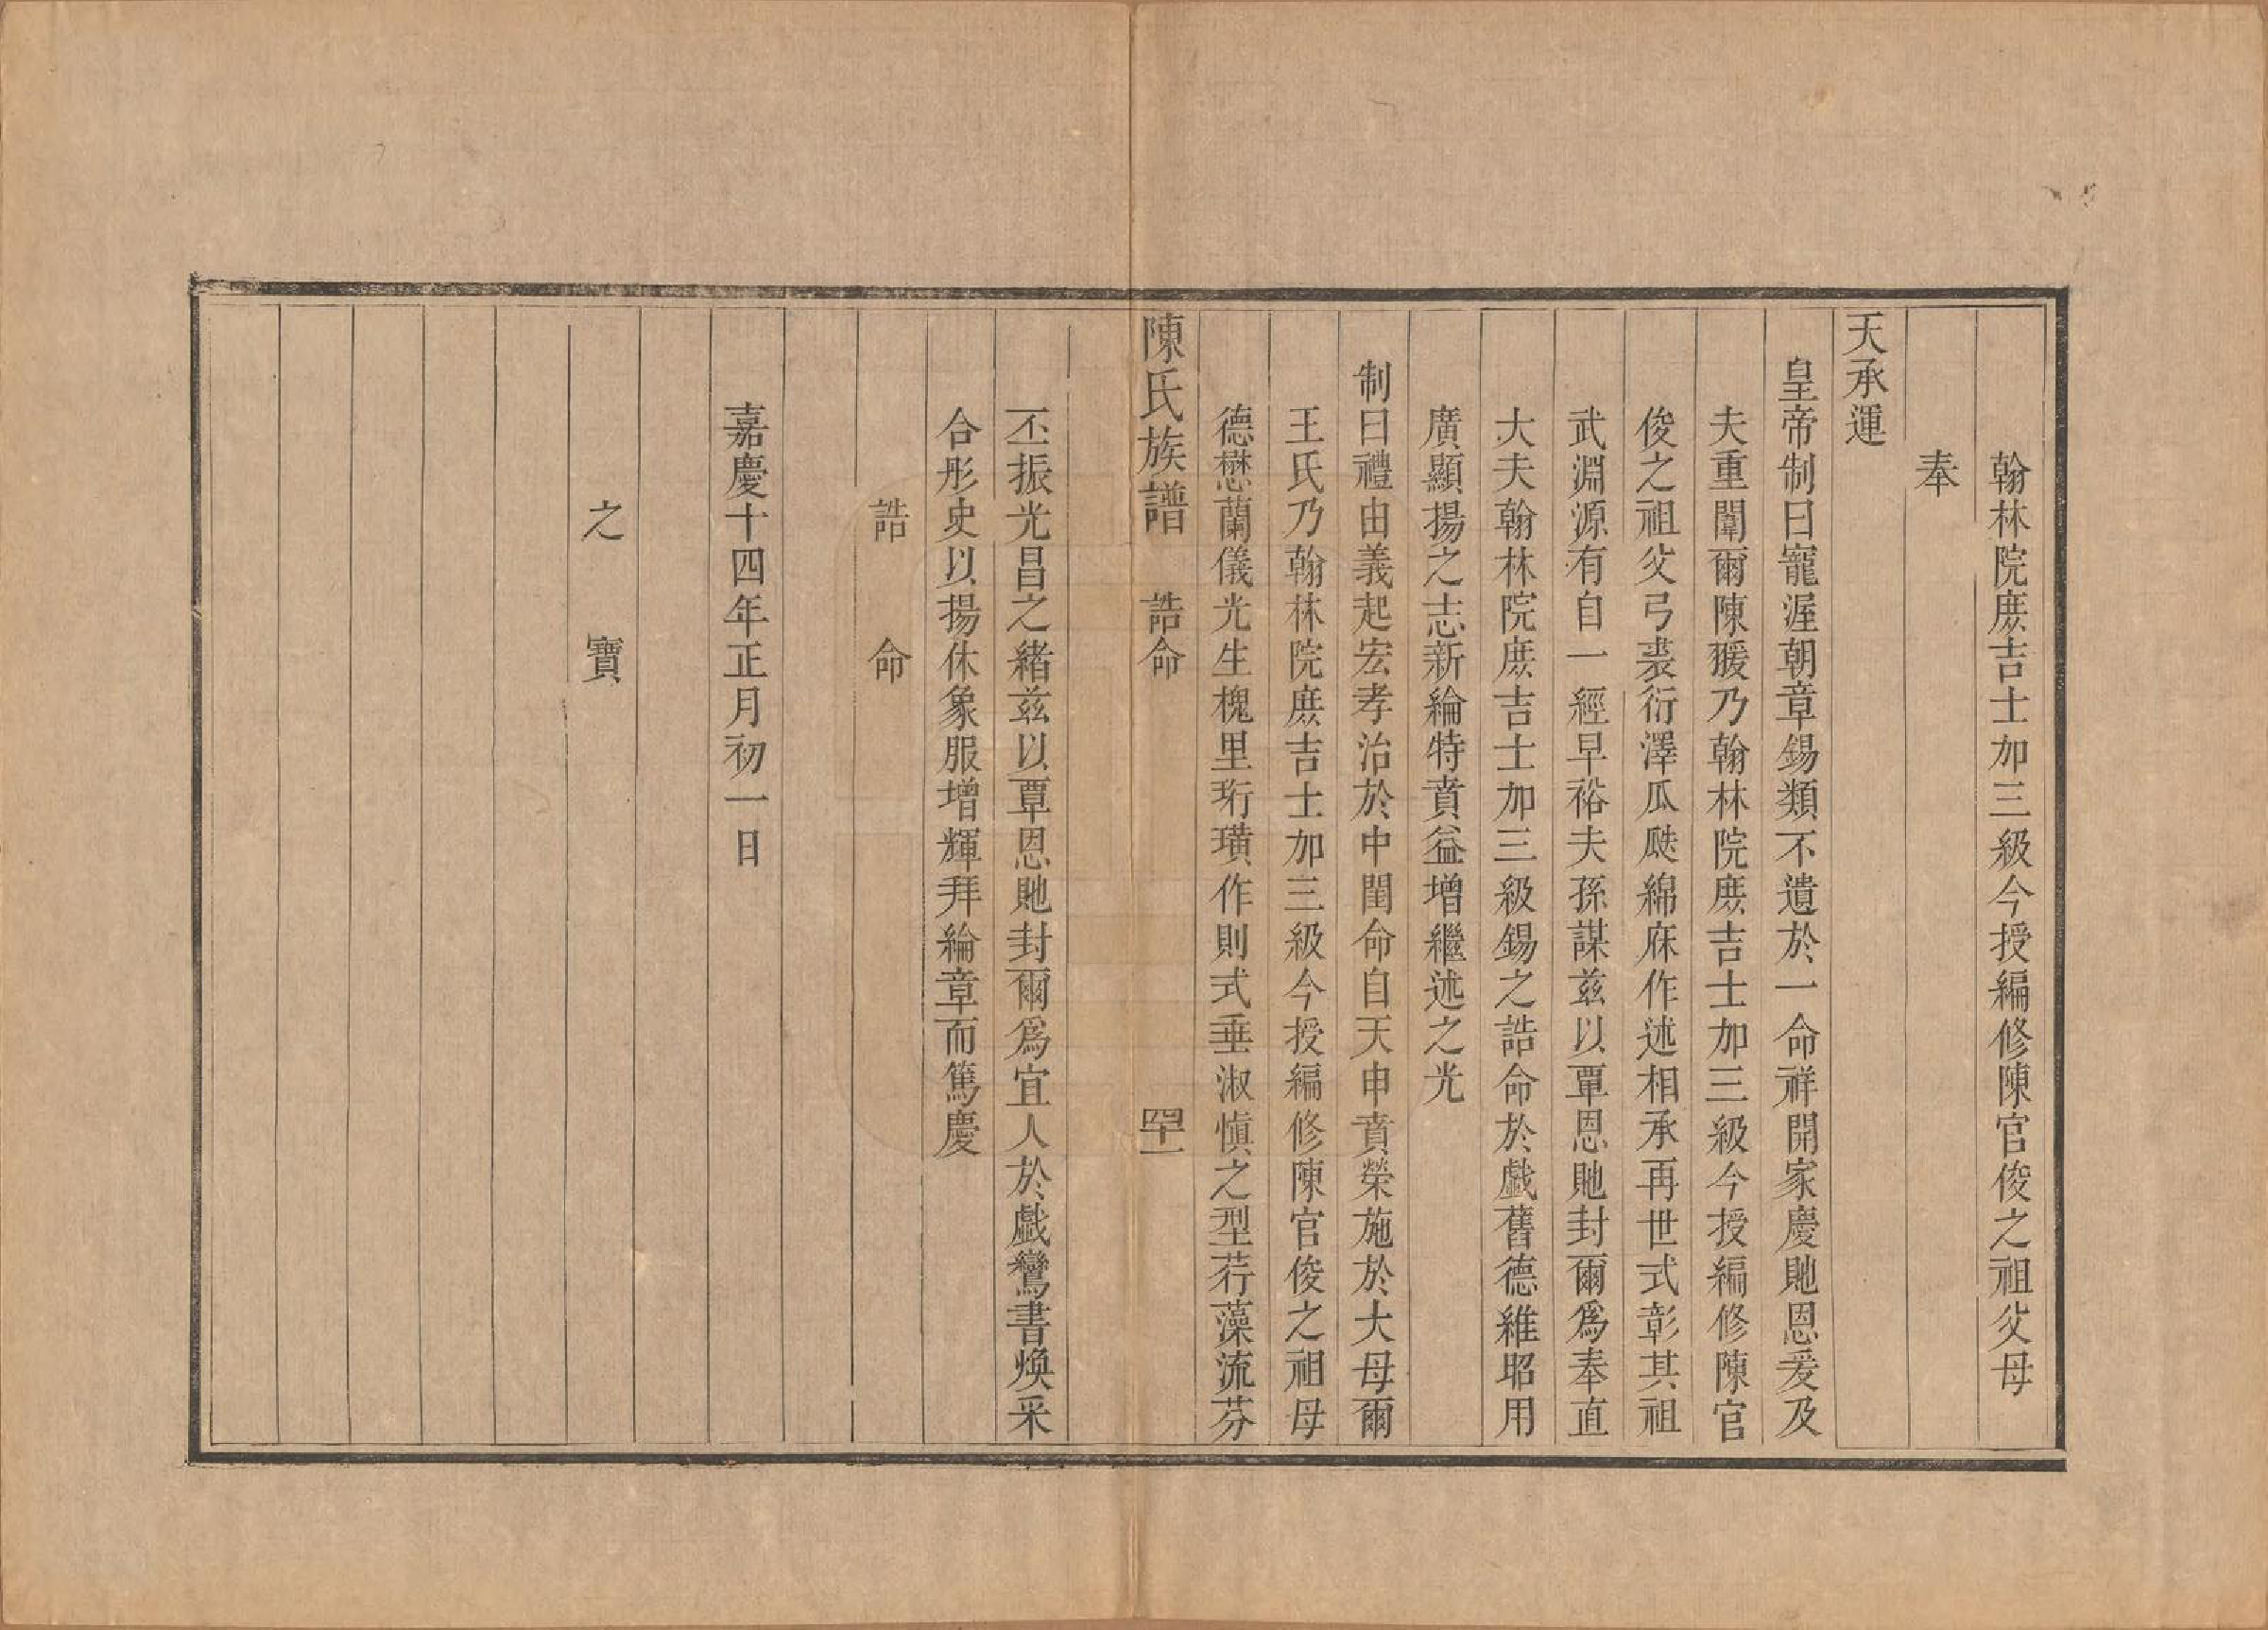 翰林院庶吉士加三級今授編修陳官俊之祖父母
奉
天承運
皇帝制曰寵渥朝章錫類不遺於一命祥開家慶貤恩爰及
夫重闈爾陳㬉乃翰林院庶吉士加三級今授編修陳官
俊之祖父弓裘衍澤瓜瓞綿庥作述相承再世式彰其祖
武淵源有自一經早裕夫孫謀兹以覃恩貤封爾爲奉直
大夫翰林院庶吉士加三級錫之誥命於戯舊德維昭用
廣顯揚之志新綸特賁益增繼述之光
制曰禮由義起宏孝治於中閨命自天申賁榮施於大母爾
王氏乃翰林院庶吉士加三級今授編修陳官俊之祖母
德懋蘭儀光生槐里珩璜作則式垂淑愼之型荇藻流芬
陳氏族譜 誥命 四十一
丕振光昌之緒兹以覃恩貤封爾爲宜人於戯鸞書煥采
合彤史以揚休象服增輝拜綸章而篤慶
誥命
嘉慶十四年正月初一日
之寶